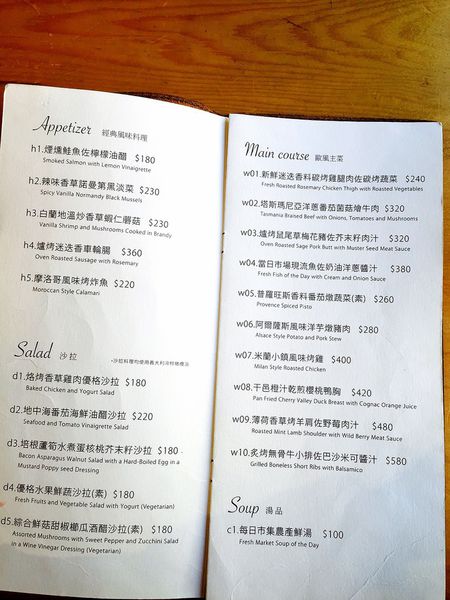 Appetizer 經典風味料理
h1.煙燻鮭魚佐檸檬油醋 $180
Smoked Salmon with Lemon Vinaigrette
h2.辣味香草諾曼第黑淡菜 $230
Spicy Vanilla Normandy Black Mussels
h3.白蘭地溫炒香草蝦仁蘑菇 $230
Vanilla Shrimp and Mushrooms Cooked in Brandy
h4.爐烤迷迭香車輪腸 $360
Oven Roasted Sausage with Rosemary
h5.摩洛哥風味烤炸魚 $220
Moroccan Style Calamari
Salad 沙拉
d1.烙烤香草雞肉優格沙拉 $180
Baked Chicken and Yogurt Salad
d2.地中海番茄海鮮油醋沙拉 $220
Seafood and Tomato Vinaigrette Salad
d3.培根蘆筍水煮蛋核桃芥末籽沙拉 $180
Bacon Asparagus Walnut Salad with a Hard-Boiled Egg in a
Mustard Poppy seed Dressing
d4.優格水果鮮蔬沙拉(素) $180
Fresh Fruits and Vegetable Salad with Yogurt (Vegetarian)
d5.綜合鮮菇甜椒櫛瓜酒醋沙拉(素) $180
Assorted Mushrooms with Sweet Pepper and Zucchini Salad
in a Wine Vinegar Dressing (Vegetarian)
Main course 歐風主菜
w01.新鮮迷迭香料碳烤雞腿肉佐碳烤蔬菜 $240
Fresh Roasted Rosemary Chicken Thigh with Roasted Vegetables
w02.塔斯瑪尼亞洋蔥番茄菌菇燴牛肉 $320
Tasmania Braised Beef with Onions, Tomatoes and Mushrooms
w03.爐烤鼠尾草梅花豬佐芥末籽肉汁 $320
Oven Roasted Sage Pork Butt with Muster Seed Meat Sauce
w04.當日市場現流魚佐奶油洋蔥醬汁 $380
Fresh Fish of the Day with Cream and Onion Sauce
w05.普羅旺斯香料番茄燉蔬菜(素) $260
Provence Spiced Pisto
w06.阿爾薩斯風味洋芋燉豬肉 $280
Alsace Style Potato and Pork Stew
w07.米蘭小鎮風味烤雞 $400
Milan Style Roasted Chicken
w08.干邑橙汁乾煎櫻桃鴨胸 $420
Pan Fried Cherry Valley Duck Breast with Cognac Orange Juice
w09.薄荷香草烤羊肩佐野莓肉汁 $480
Roasted Mint Lamb Shoulder with Wild Berry Meat Sauce
w10.炙烤無骨牛小排佐巴沙米可醬汁 $580
Grilled Boneless Short Ribs with Balsamico
Soup 湯品
c1.每日市集農產鮮湯 $100
Fresh Market Soup of the Day